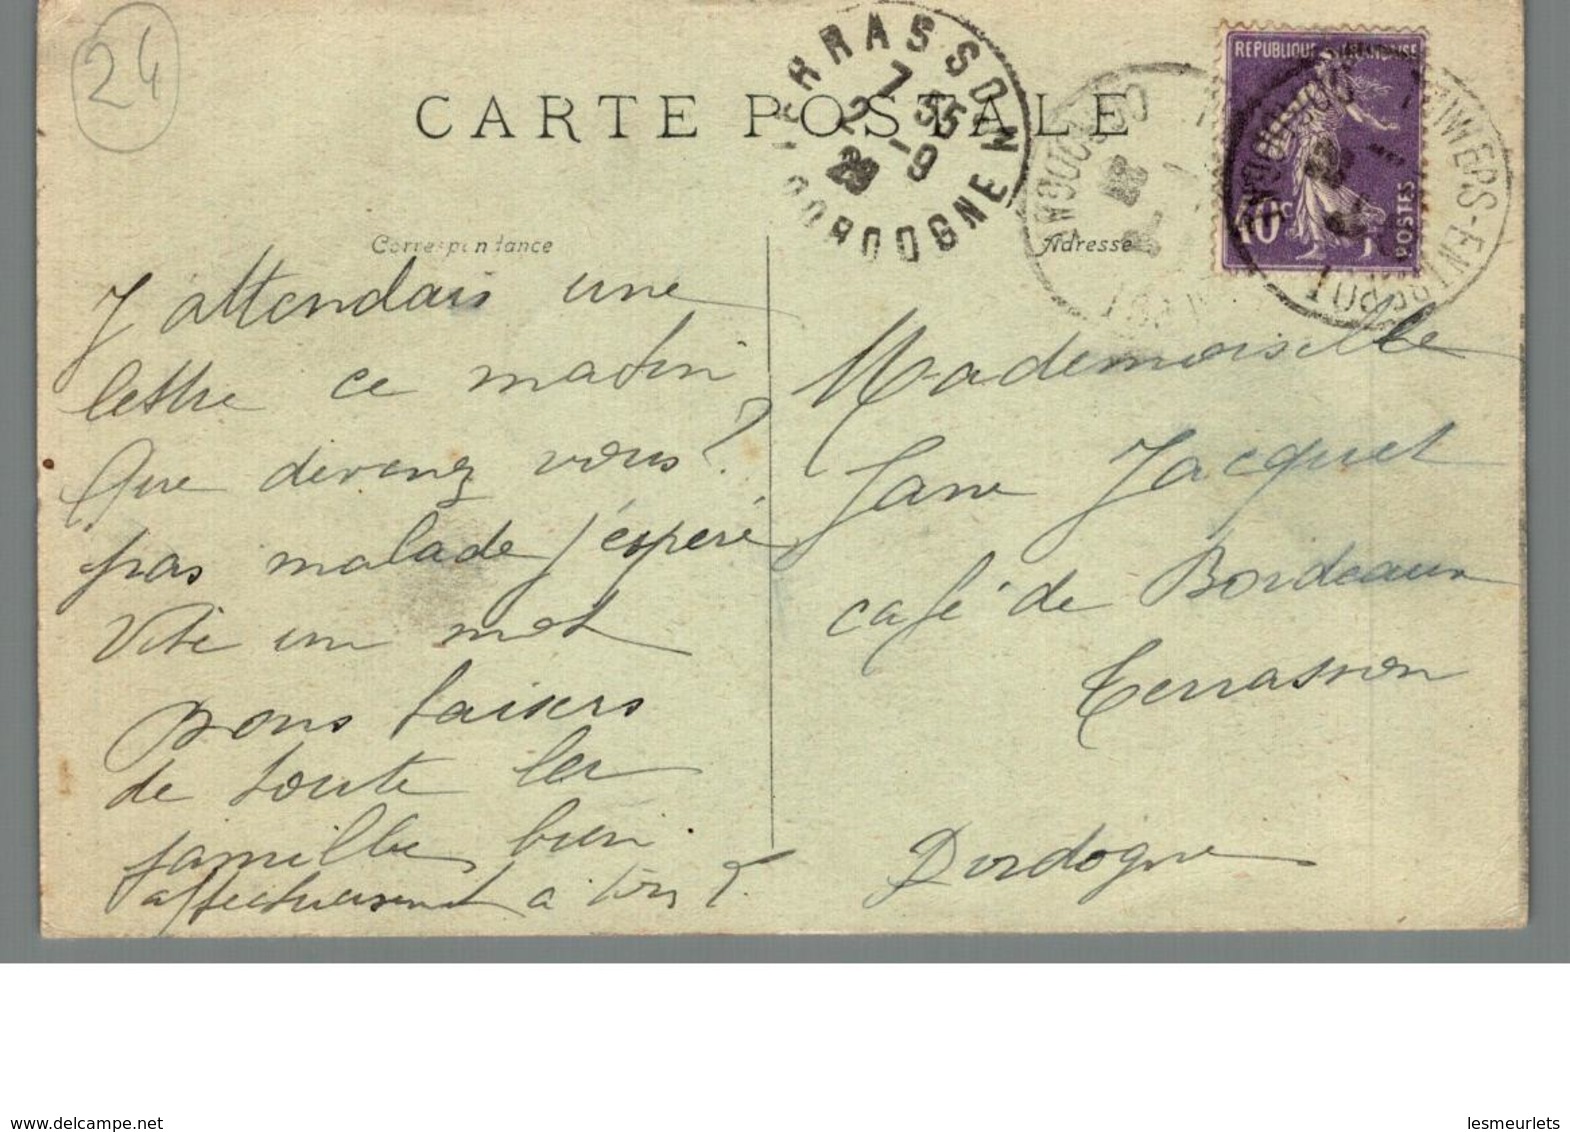 24
CARTE POSTALE
TERRASSON
7 55
2 - 9
28
DORDOGNE
REPUBLIQUE FRANÇAISE
10c
POSTES
Correspondance
Adresse
J'attendais une
lettre ce matin
Que devenez vous ?
pas malade j'espère
Vite un mot
Bons baisers
de toute la
famille bien
affectueusement à
Mademoiselle
Jane Jacquet
café de Bordeaux
Terrasson
Dordogne
www.delcampe.net
lesmeurlets